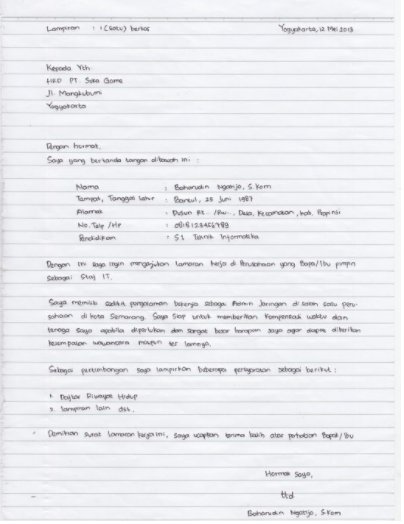 Lampiran : 1 (Satu) berkas
Yogyakarta, 12 Mei 2013
Kepada Yth.
HRD PT. Suka Game
Jl. Mangkubumi
Yogyakarta
Dengan hormat,
Saya yang bertanda tangan dibawah ini :
Nama : Baharudin Ngatijo, S.Kom
Tempat, Tanggal Lahir : Bantul, 25 Juni 1987
Alamat : Dusun Rt.. /Rw.., Desa, Kecamatan, Kab, Propinsi
No. Telp /HP : 08181234
Pendidikan : S1 Teknik Informatika
Dengan ini saya ingin mengajukan lamaran kerja di Perusahaan yang Bapa/Ibu pimpin
sebagai Staf IT.
Saya memiliki sedikit pengalaman bekerja sebagai Admin Jaringan di salah satu peru-
sahaan di kota Semarang. Saya siap untuk memberikan kompensasi waktu dan
tenaga saya apabila diperlukan dan sangat besar harapan saya agar dapat diberikan
kesempatan wawancara maupun tes lainnya.
Sebagai pertimbangan saya lampirkan beberapa persyaratan sebagai berikut :
1. Daftar Riwayat Hidup
2. lampiran lain dst.
Demikian surat lamaran kerja ini, saya ucapkan terima kasih atas perhatian Bapak/Ibu
Hormat Saya,
ttd
Baharudin Ngatijo, S.Kom